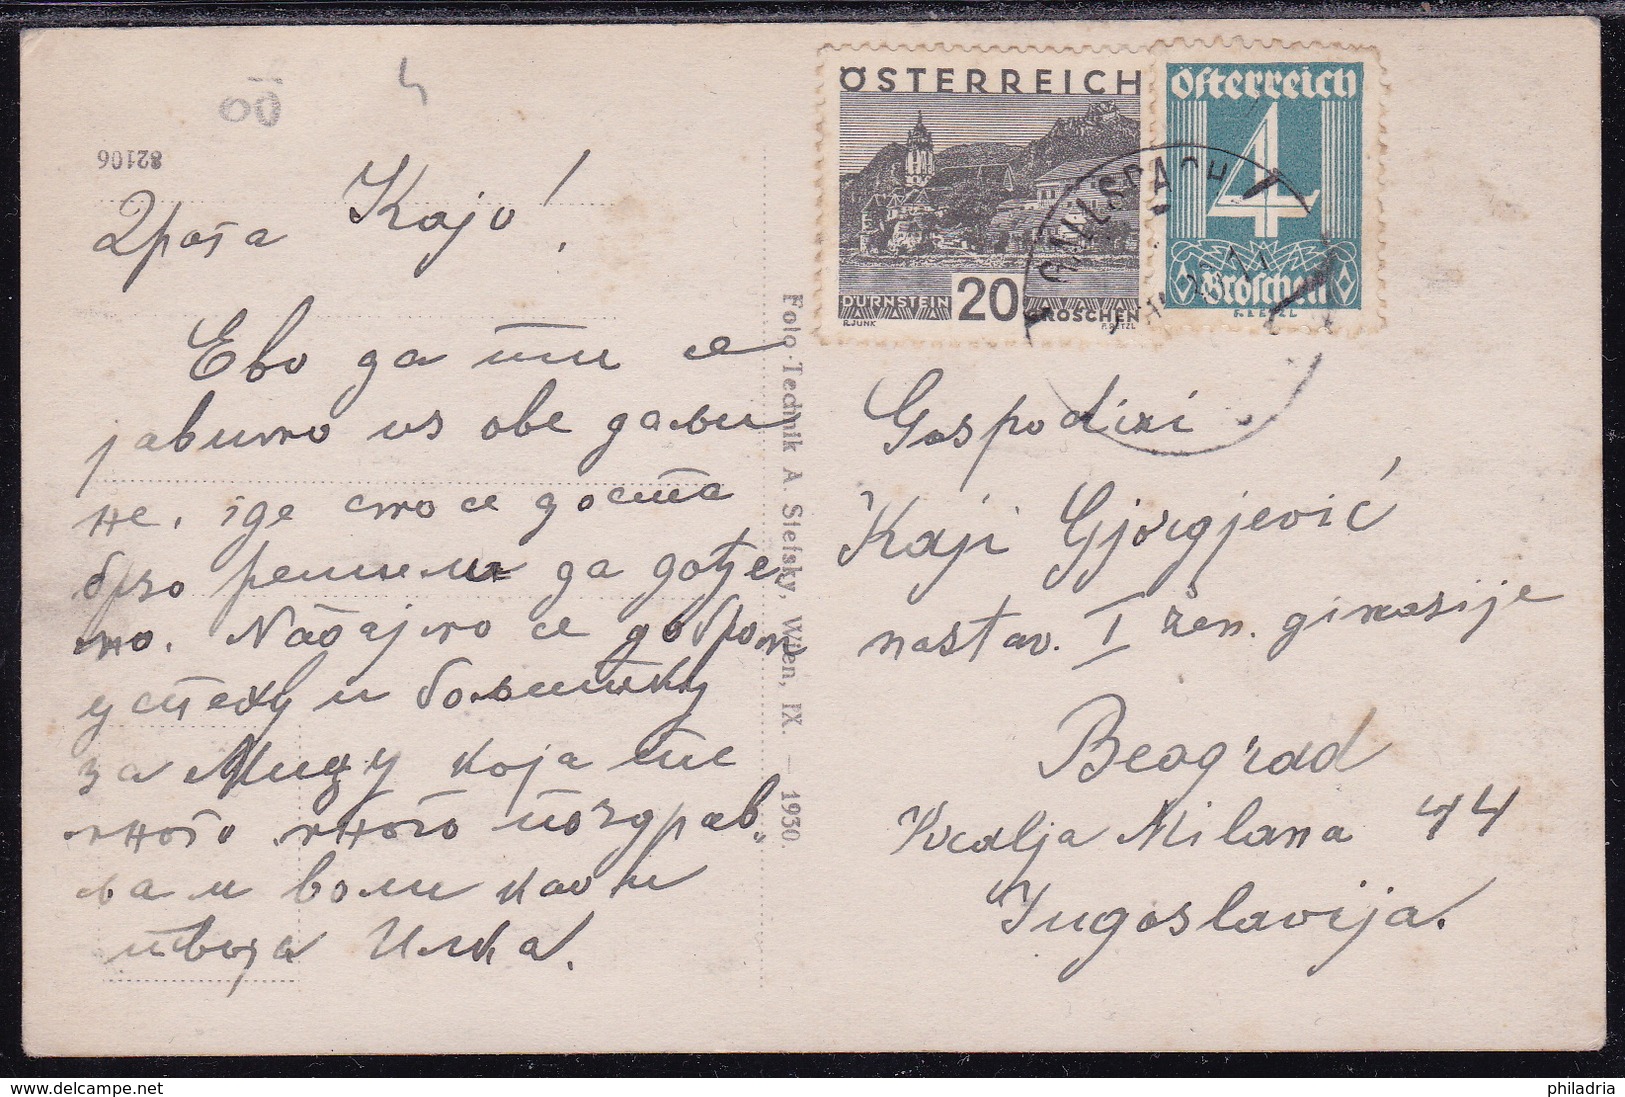 82106
ÖSTERREICH
DÜRNSTEIN 20 GROSCHEN
R.JUNK
Österreich
4
Groschen
Драга Кајо!
Ево да ти се
јавимо из ове даљи
не, где смо се доста
брзо решили да дође
мо. Надајмо се добром
успеху и бољитку
за Мицу која те
много много поздрав„
ља и воли као и
твоја Илка.
Foto-Technik A. Stefsky, Wien, IX. — 1930.
Gospodjici
Kaji Gjorgjević
nastav. I žen. gimnasije
Beograd
Kralja Milana 44
Jugoslavija.
www.delcampe.net
philadria